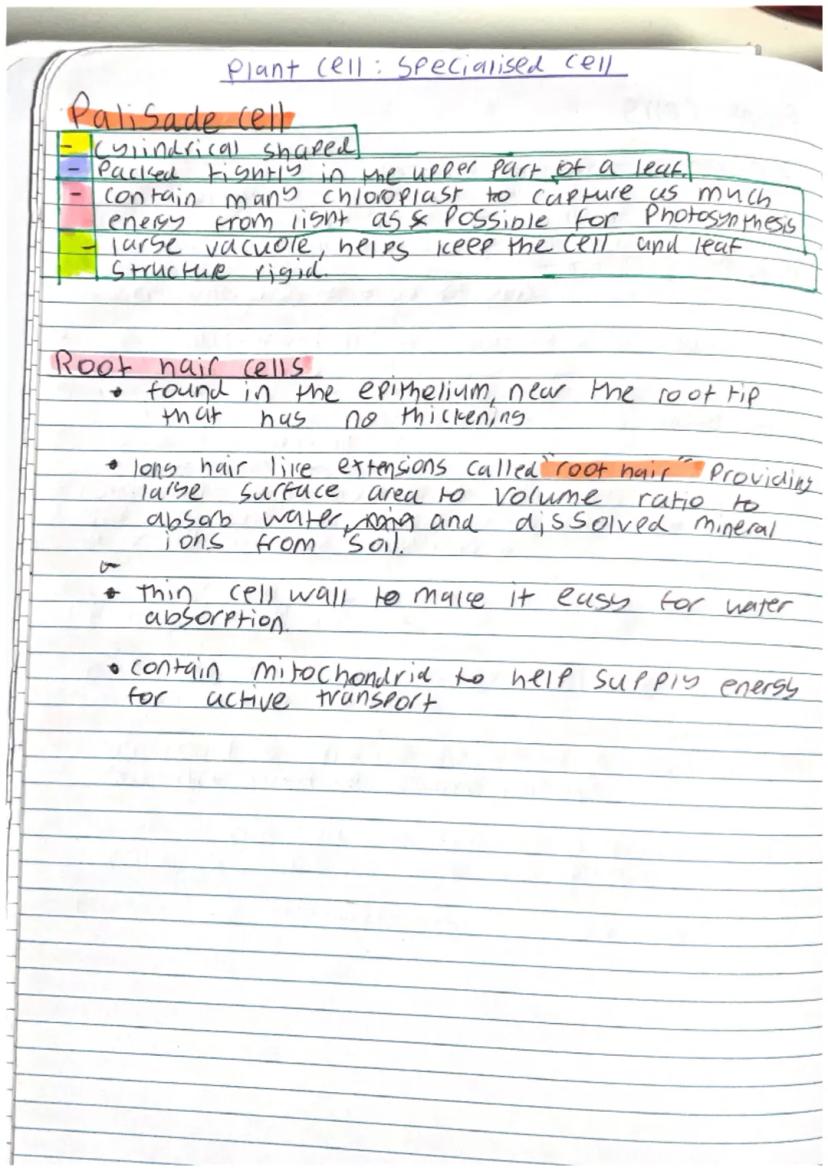 Plant cell : Specialised cell
Palisade cell
- Cylindrical shaped
- Packed tightly in the upper part of a leaf.
- contain many chloroplast to capture as much
energy from light as possible for Photosynthesis
- large vacuole, helps keep the cell and leaf
structure rigid.
Root hair cells
• found in the epithelium, near the root tip
that has no thickening
• long hair like extensions called "root hair" Providing
large surface area to volume ratio to
absorb water, and dissolved mineral
ions from soil.
• thin cell wall to make it easy for water
absorption.
• contain mitochondria to help supply energy
for active transport